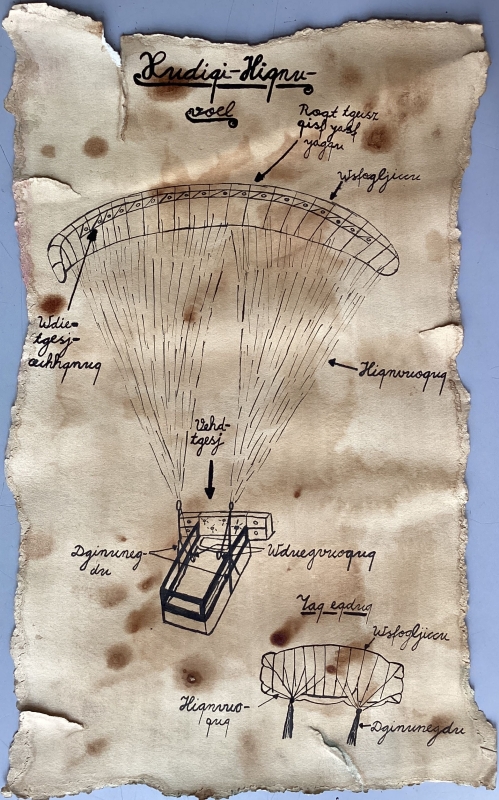 Hudigi-Hignu-
voel
Rogt tgeusz
gisf yasf
yagqu
Wsfogljiccu
Wdie-
tgesj-
œchhgnuq
Hignvuoquq
Vehd-
tgesj
Dginuneg-
du
Wduegvuoquq
Yaq egduq
Wsfogljiccu
Hignvuo-
quq
Dginunegdu